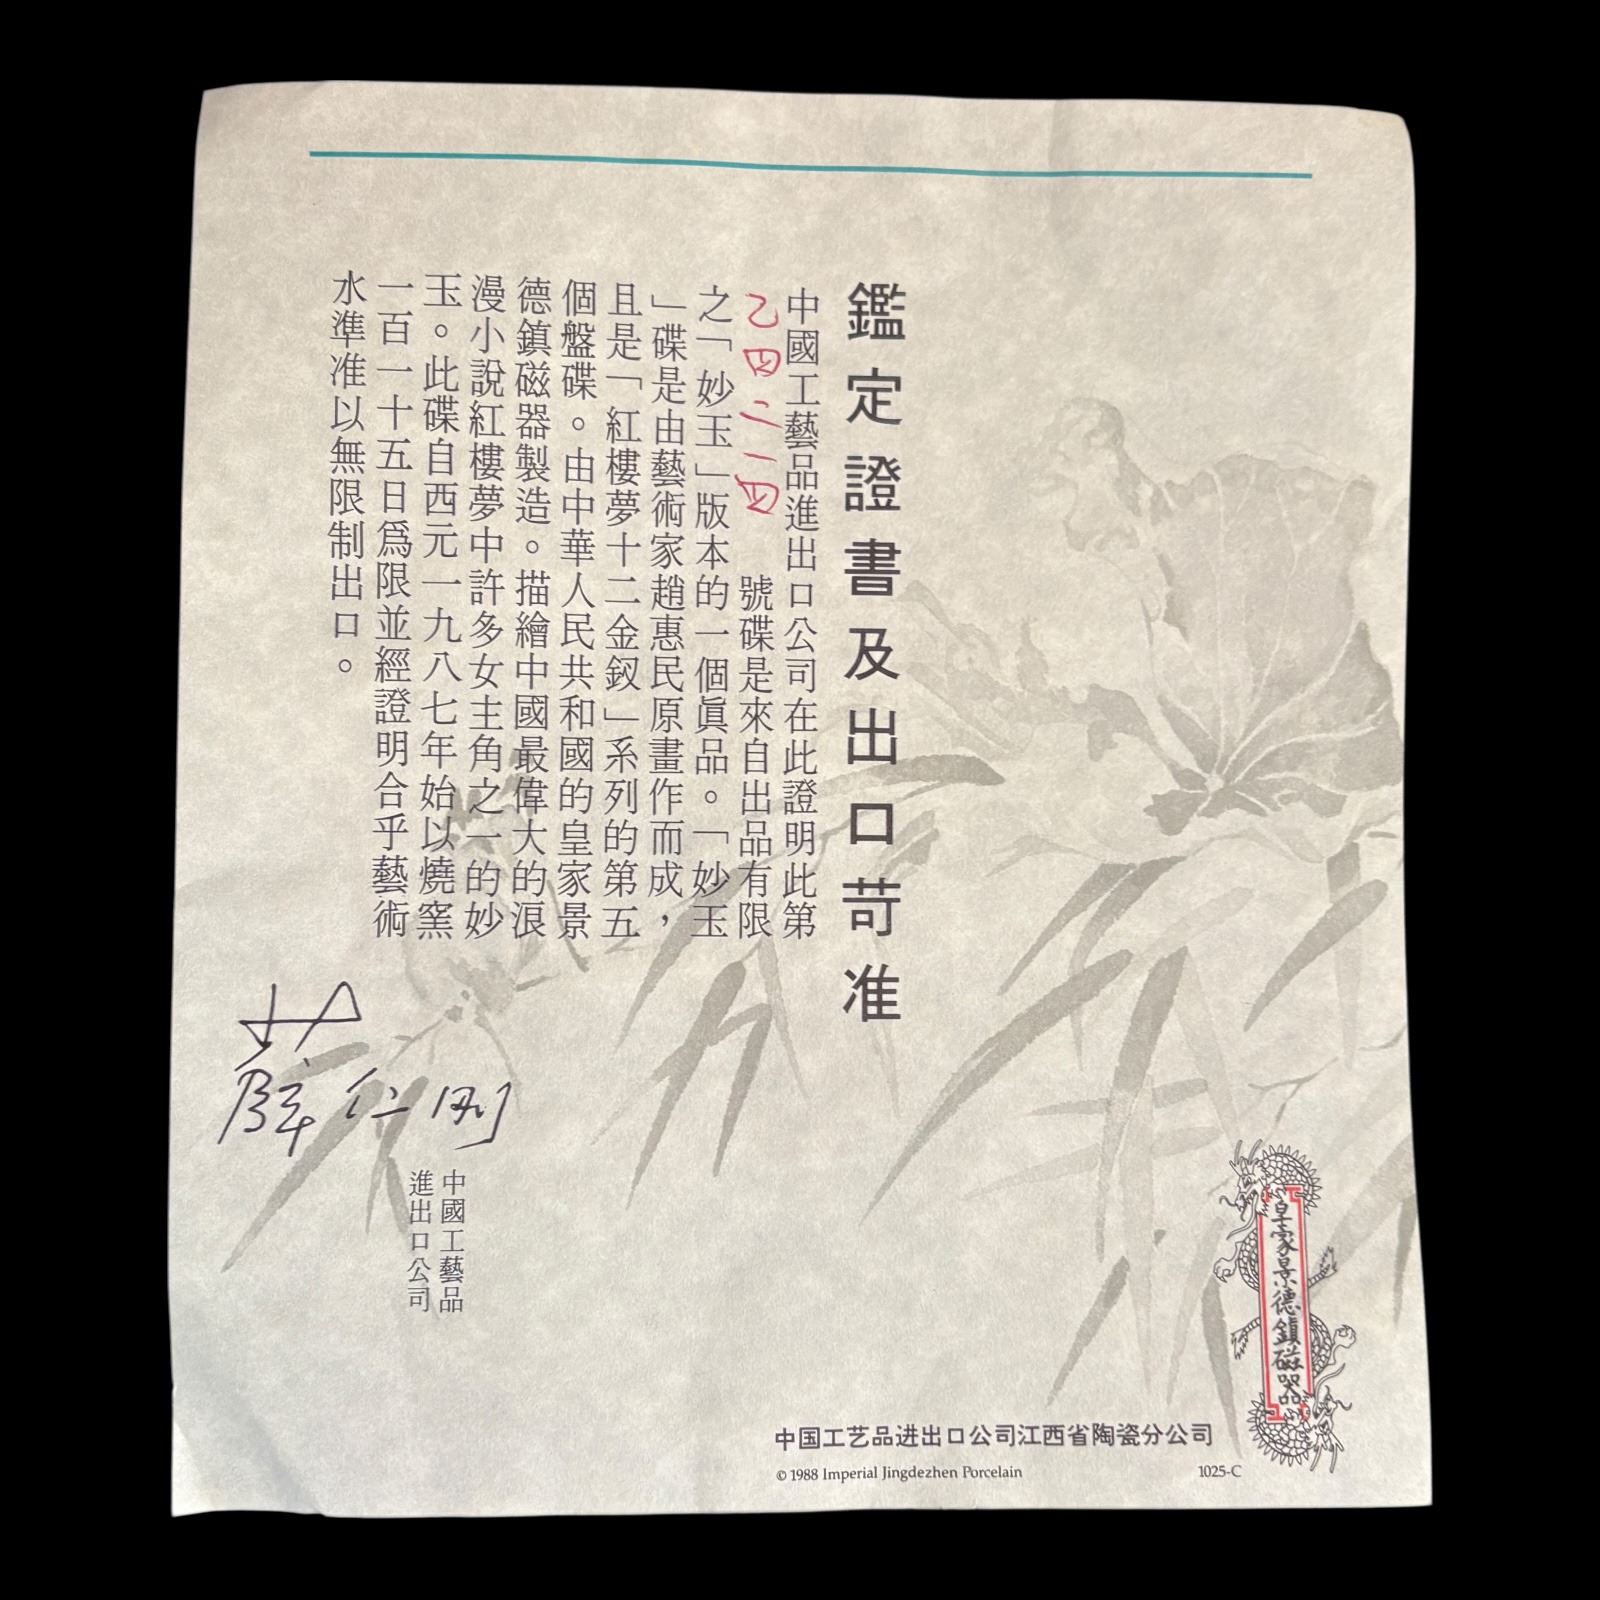 鑑定證書及出口苛准
中國工藝品進出口公司在此證明此第
乙四二一四 號碟是來自出品有限
之「妙玉」版本的一個眞品。「妙玉
」碟是由藝術家趙惠民原畫作而成，
且是「紅樓夢十二金釵」系列的第五
個盤碟。由中華人民共和國的皇家景
德鎮磁器製造。描繪中國最偉大的浪
漫小說紅樓夢中許多女主角之一的妙
玉。此碟自西元一九八七年始以燒窯
一百一十五日爲限並經證明合乎藝術
水準准以無限制出口。
薛仁刚
中國工藝品
進出口公司
皇家景德鎮磁器
中国工艺品进出口公司江西省陶瓷分公司
© 1988 Imperial Jingdezhen Porcelain
1025-C